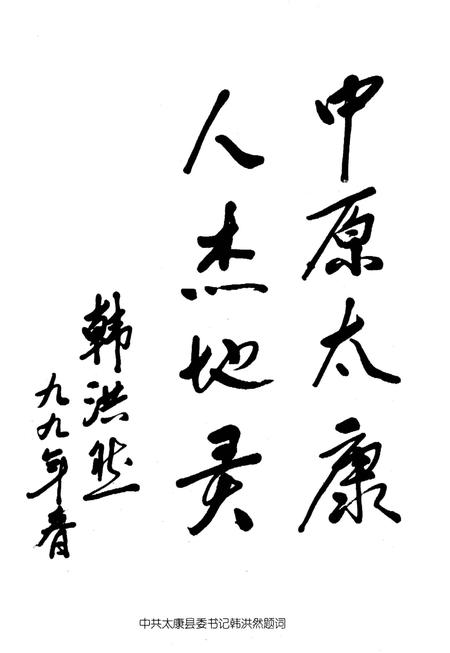 中原太康
人杰地灵
韩洪然
九九年春
中共太康县委书记韩洪然题词